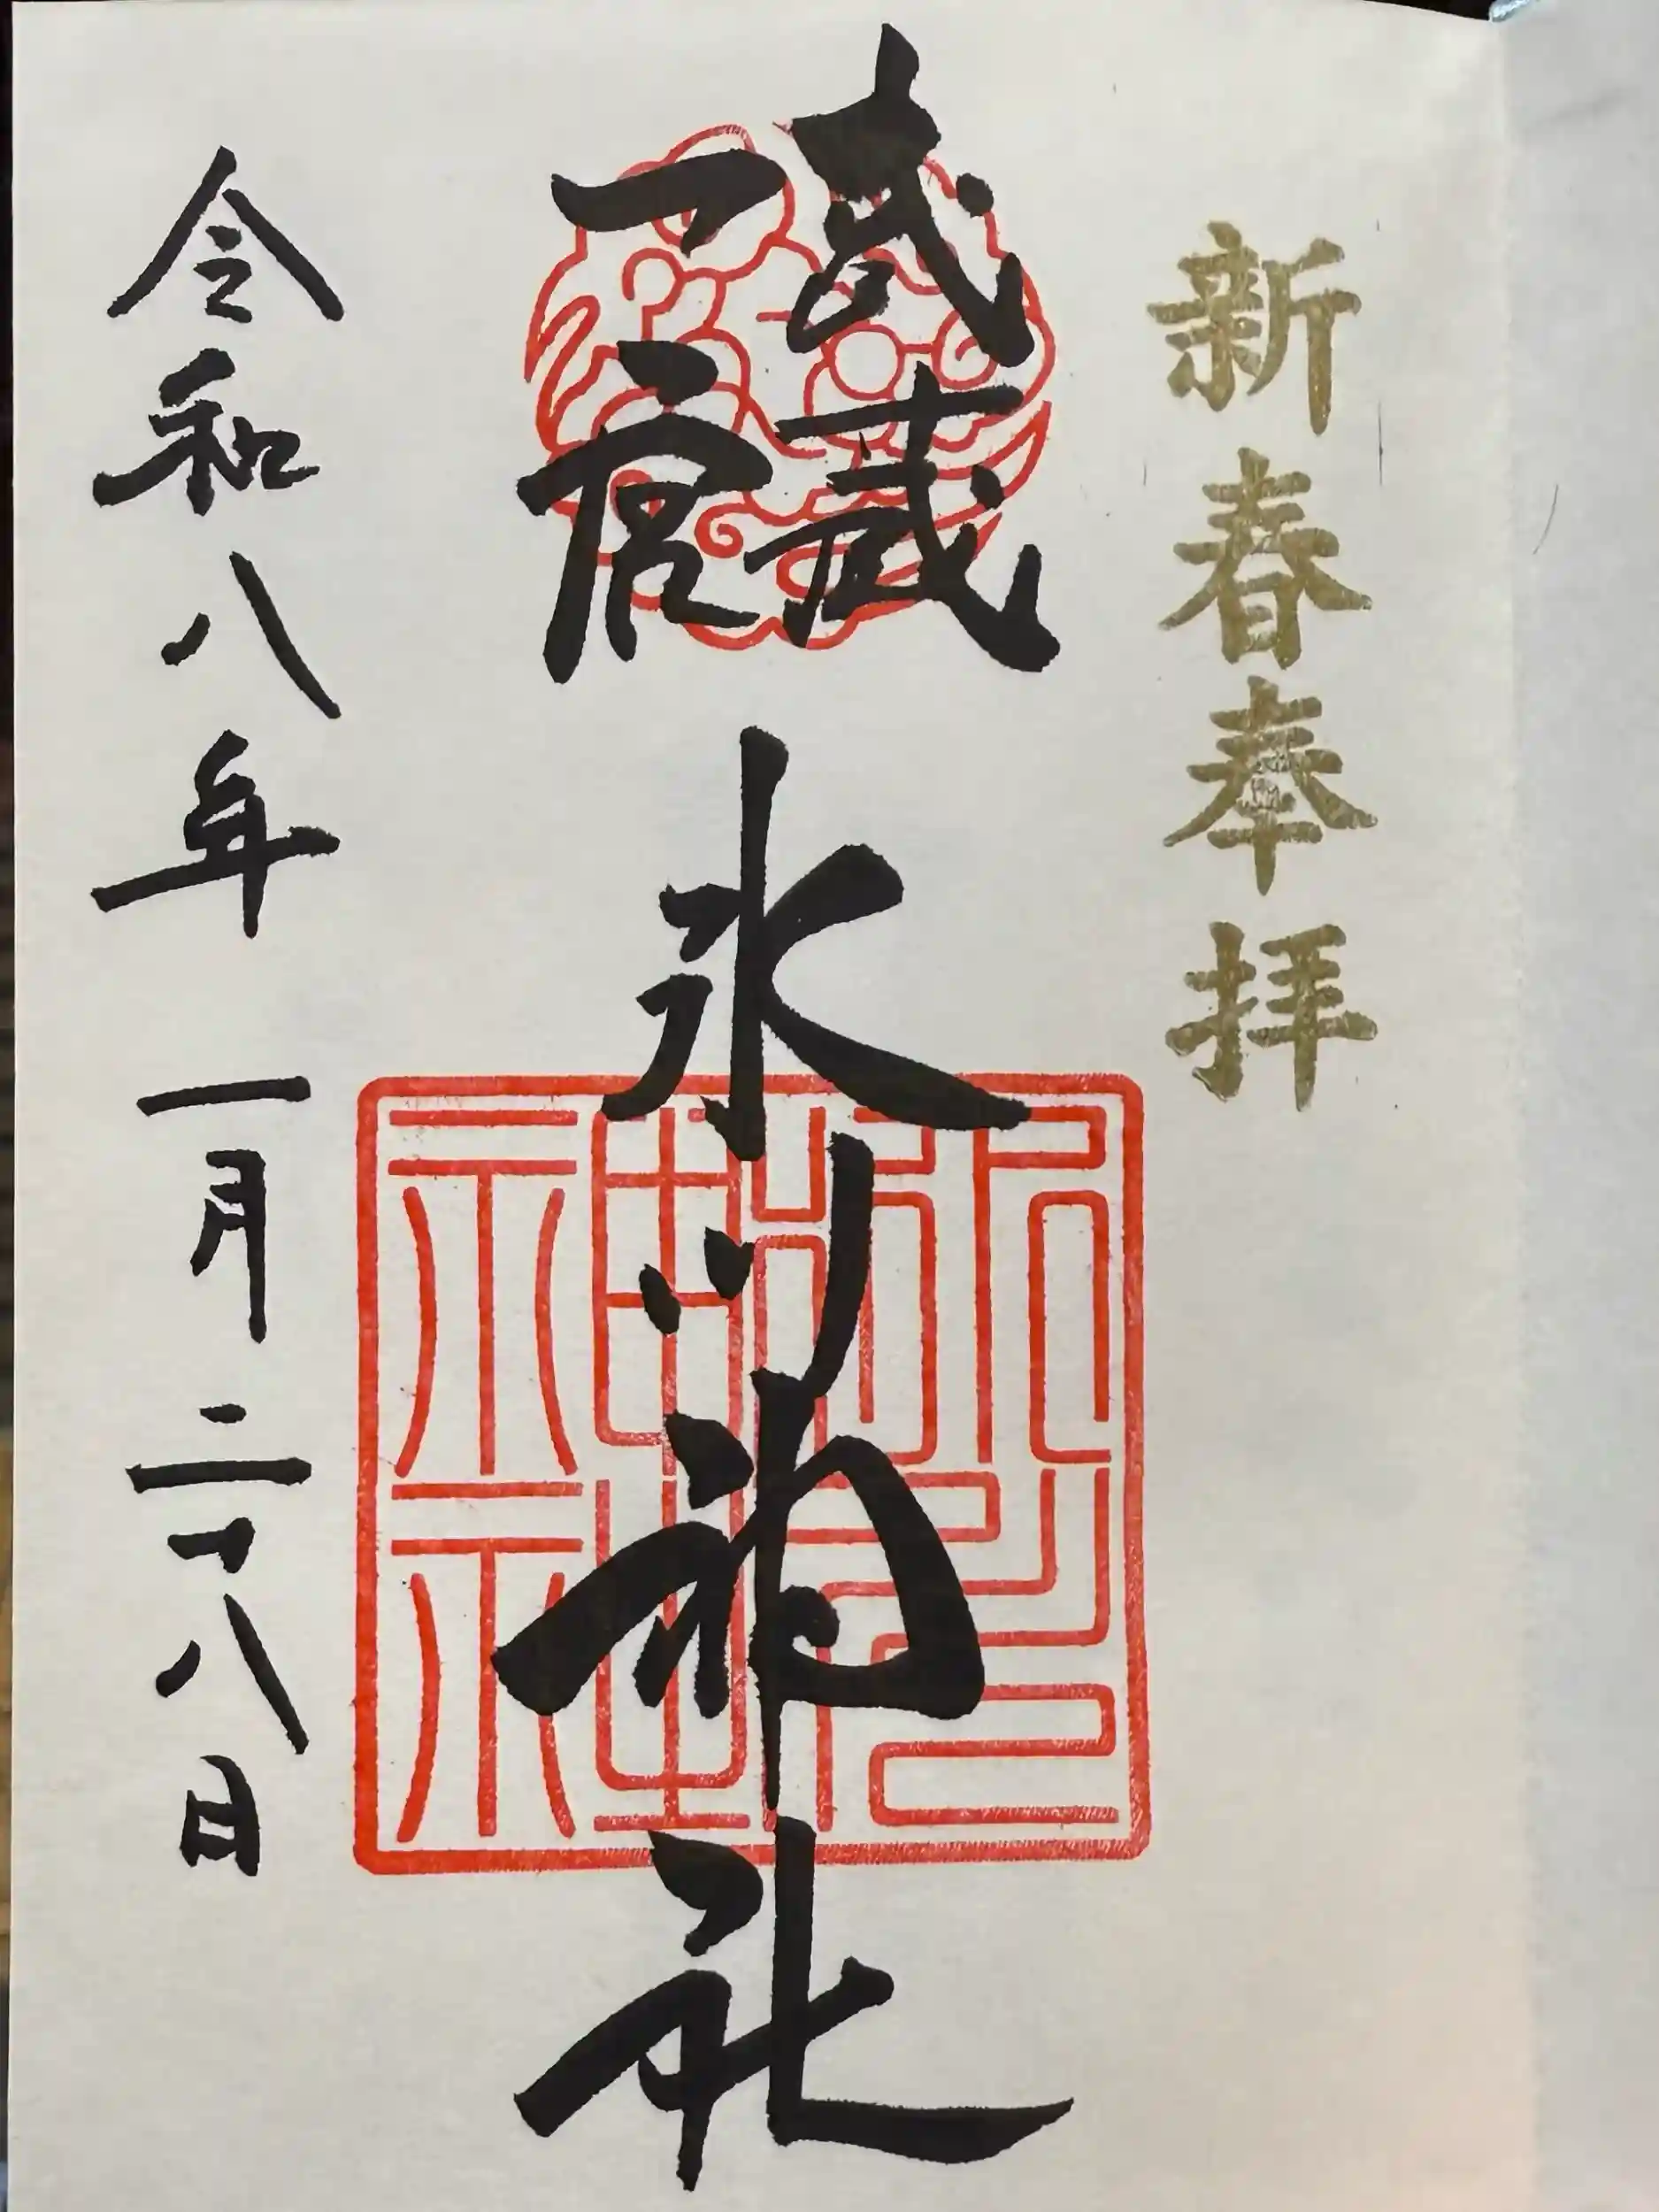 新春奉拝
武蔵
一宮
氷川神社
令和八年一月二十八日